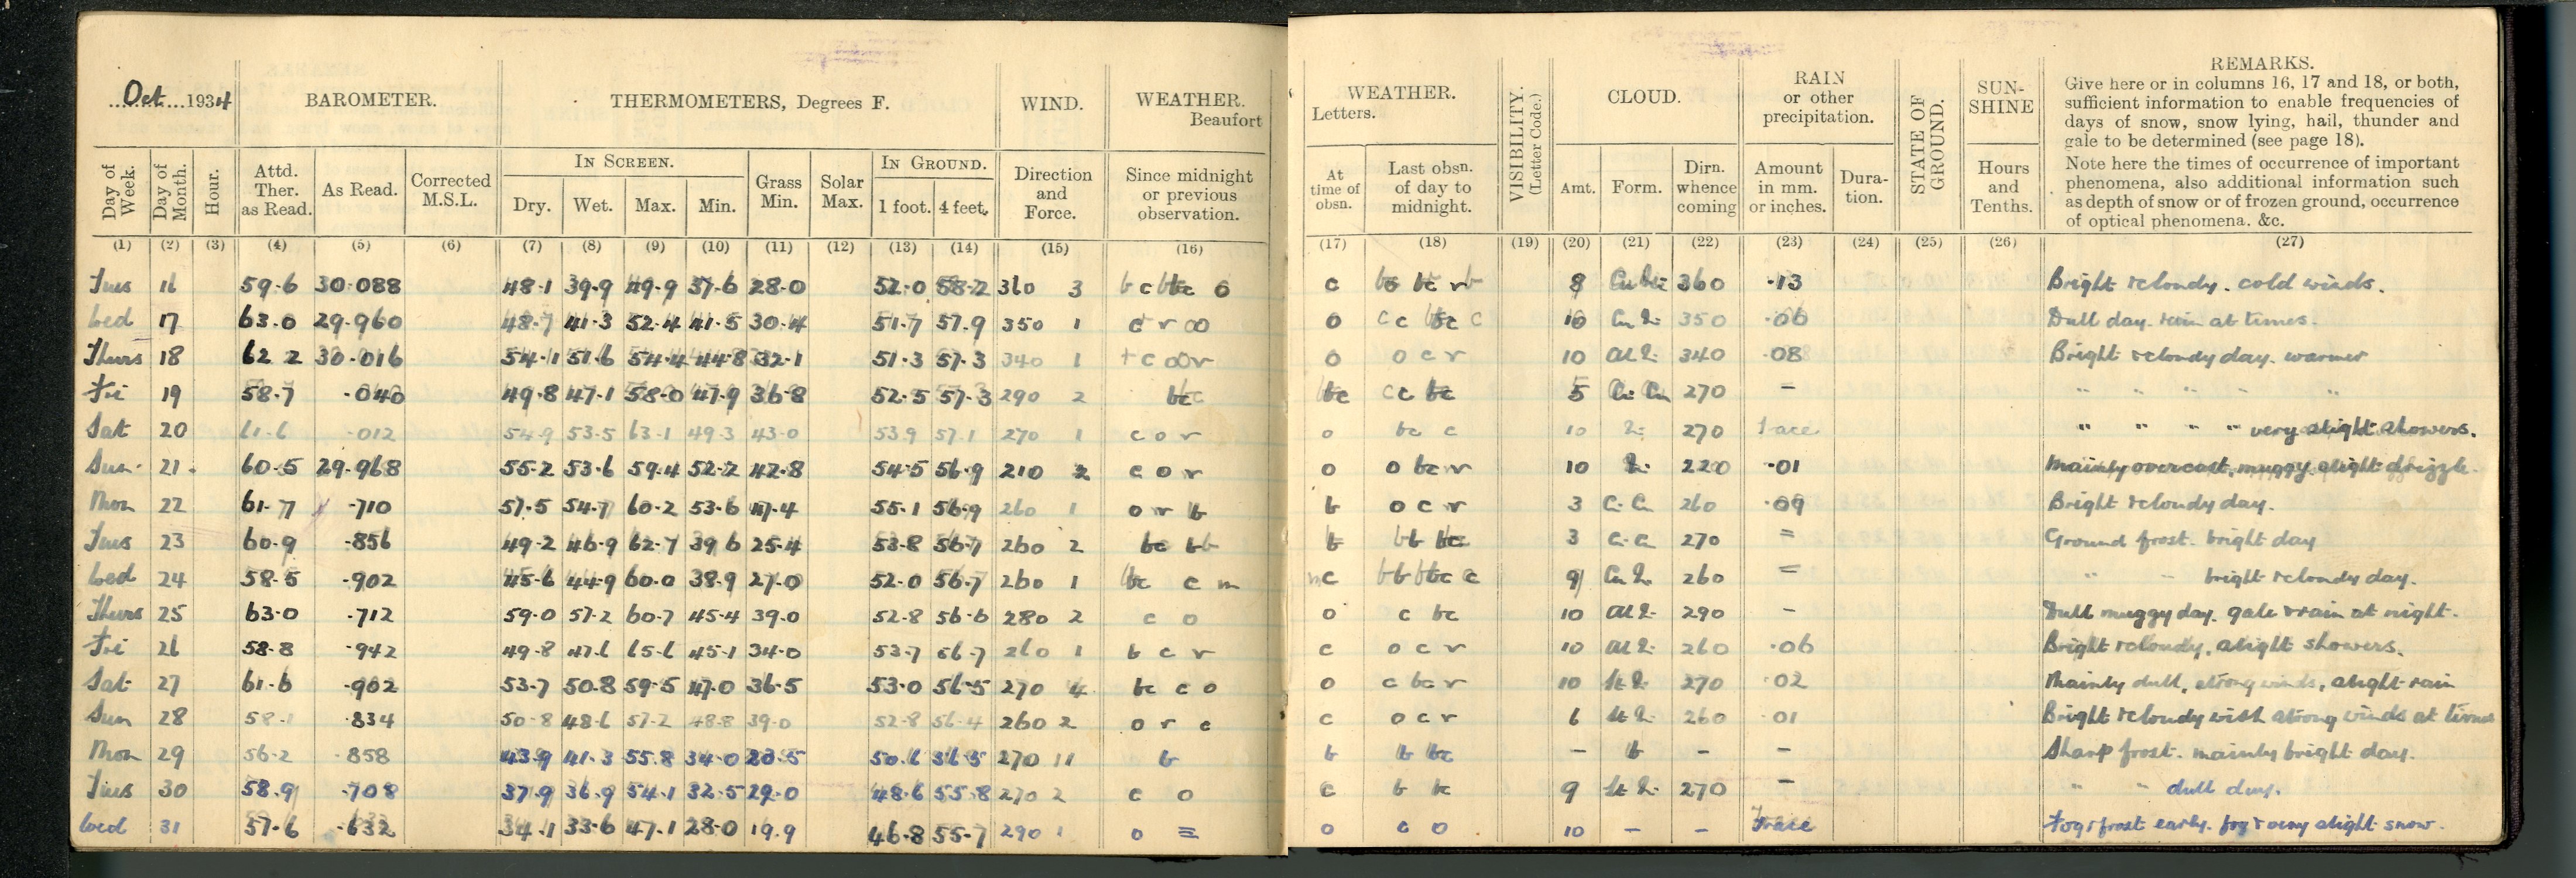 Oct. 1934 BAROMETER. THERMOMETERS, Degrees F. WIND. WEATHER. Beaufort
Day of Week. Day of Month. Hour. Attd. Ther. as Read. As Read. Corrected M.S.L. IN SCREEN. Dry. Wet. Max. Min. Grass Min. Solar Max. IN GROUND. 1 foot. 4 feet. Direction and Force. Since midnight or previous observation.
(1) (2) (3) (4) (5) (6) (7) (8) (9) (10) (11) (12) (13) (14) (15) (16)
Tues 16 59.6 30.088 48.1 39.9 49.9 37.6 28.0 52.0 58.2 310 3 b c bc o
Wed 17 63.0 29.960 48.7 41.3 52.4 41.5 30.4 51.7 57.9 350 1 c r oo
Thurs 18 62.2 30.016 54.1 51.6 54.4 44.8 32.1 51.3 57.3 340 1 c oor
Fri 19 58.7 .040 49.8 47.1 58.0 47.9 36.8 52.5 57.3 290 2 bc
Sat 20 61.6 .012 54.9 53.5 63.1 49.3 43.0 53.9 57.1 270 1 c o r
Sun. 21. 60.5 29.968 55.2 53.6 59.4 52.2 42.8 54.5 56.9 210 2 c o r
Mon 22 61.7 .710 57.5 54.7 60.2 53.6 47.4 55.1 56.9 260 1 o r b
Tues 23 60.9 .856 49.2 46.9 62.7 39.6 25.4 53.8 56.7 260 2 bc bb
Wed 24 58.5 .902 45.6 44.9 60.0 38.9 27.0 52.0 56.7 260 1 bc c m
Thurs 25 63.0 .712 59.0 57.2 60.7 45.4 39.0 52.8 56.6 280 2 c o
Fri 26 58.8 .942 49.8 47.6 65.6 45.1 34.0 53.7 56.7 260 1 b c r
Sat 27 61.6 .902 53.7 50.8 59.5 47.0 36.5 53.0 56.5 270 4 bc c o
Sun 28 58.1 .834 50.8 48.6 57.2 48.8 39.0 52.8 56.4 260 2 o r c
Mon 29 56.2 .858 43.9 41.3 55.8 34.0 50.6 270 b
Tues 30 58.9 .708 37.9 36.9 54.1 32.5 29.0 48.6 55.8 270 2 c o
Wed 31 57.6 .632 34.1 33.6 47.1 28.0 19.9 46.8 55.7 290 1 o ≡
WEATHER. Letters. VISIBILITY. (Letter Code.) CLOUD. RAIN or other precipitation. STATE OF GROUND. SUN-SHINE REMARKS.
Give here or in columns 16, 17 and 18, or both,
sufficient information to enable frequencies of
days of snow, snow lying, hail, thunder and
gale to be determined (see page 18).
At time of obsn. Last obsn. of day to midnight. Amt. Form. Dirn. whence coming Amount in mm. or inches. Dura-tion. Hours and Tenths.
Note here the times of occurrence of important
phenomena, also additional information such
as depth of snow or of frozen ground, occurrence
of optical phenomena, &c.
(17) (18) (19) (20) (21) (22) (23) (24) (25) (26) (27)
c bc 8 360 .13 Bright & cloudy. cold winds.
o c c bc c 10 350 .06 Dull day. rain at times.
o o c r 10 340 .08 Bright & cloudy day. warmer
bc c c bc 5 270 - " " " " "
o bc c 10 270 Trace " " " " very slight showers.
o o bc r 10 220 .01 Mainly overcast, muggy slight drizzle.
b o c r 3 260 .09 Bright & cloudy day.
b bb bc 3 270 = Ground frost. bright day
mc bb bbc c 9 260 = " " bright & cloudy day.
o c bc 10 290 - Dull muggy day. gale & rain at night.
c o c r 10 260 .06 Bright & cloudy, slight showers.
o c bc r 10 270 .02 Mainly dull, strong winds, slight rain
c o c r 6 260 .01 Bright & cloudy with strong winds at times
b b bc - b - - Sharp frost. mainly bright day.
c b bc 9 270 - " " dull day.
o c o 10 - - Trace Fog & frost early. fog slight snow.